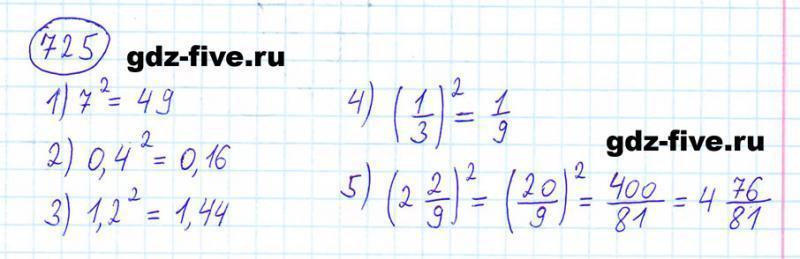 725
gdz-five.ru
1) 7² = 49
2) 0,4² = 0,16
3) 1,2² = 1,44
4) (1/3)² = 1/9
gdz-five.ru
5) (2 2/9)² = (20/9)² = 400/81 = 4 76/81